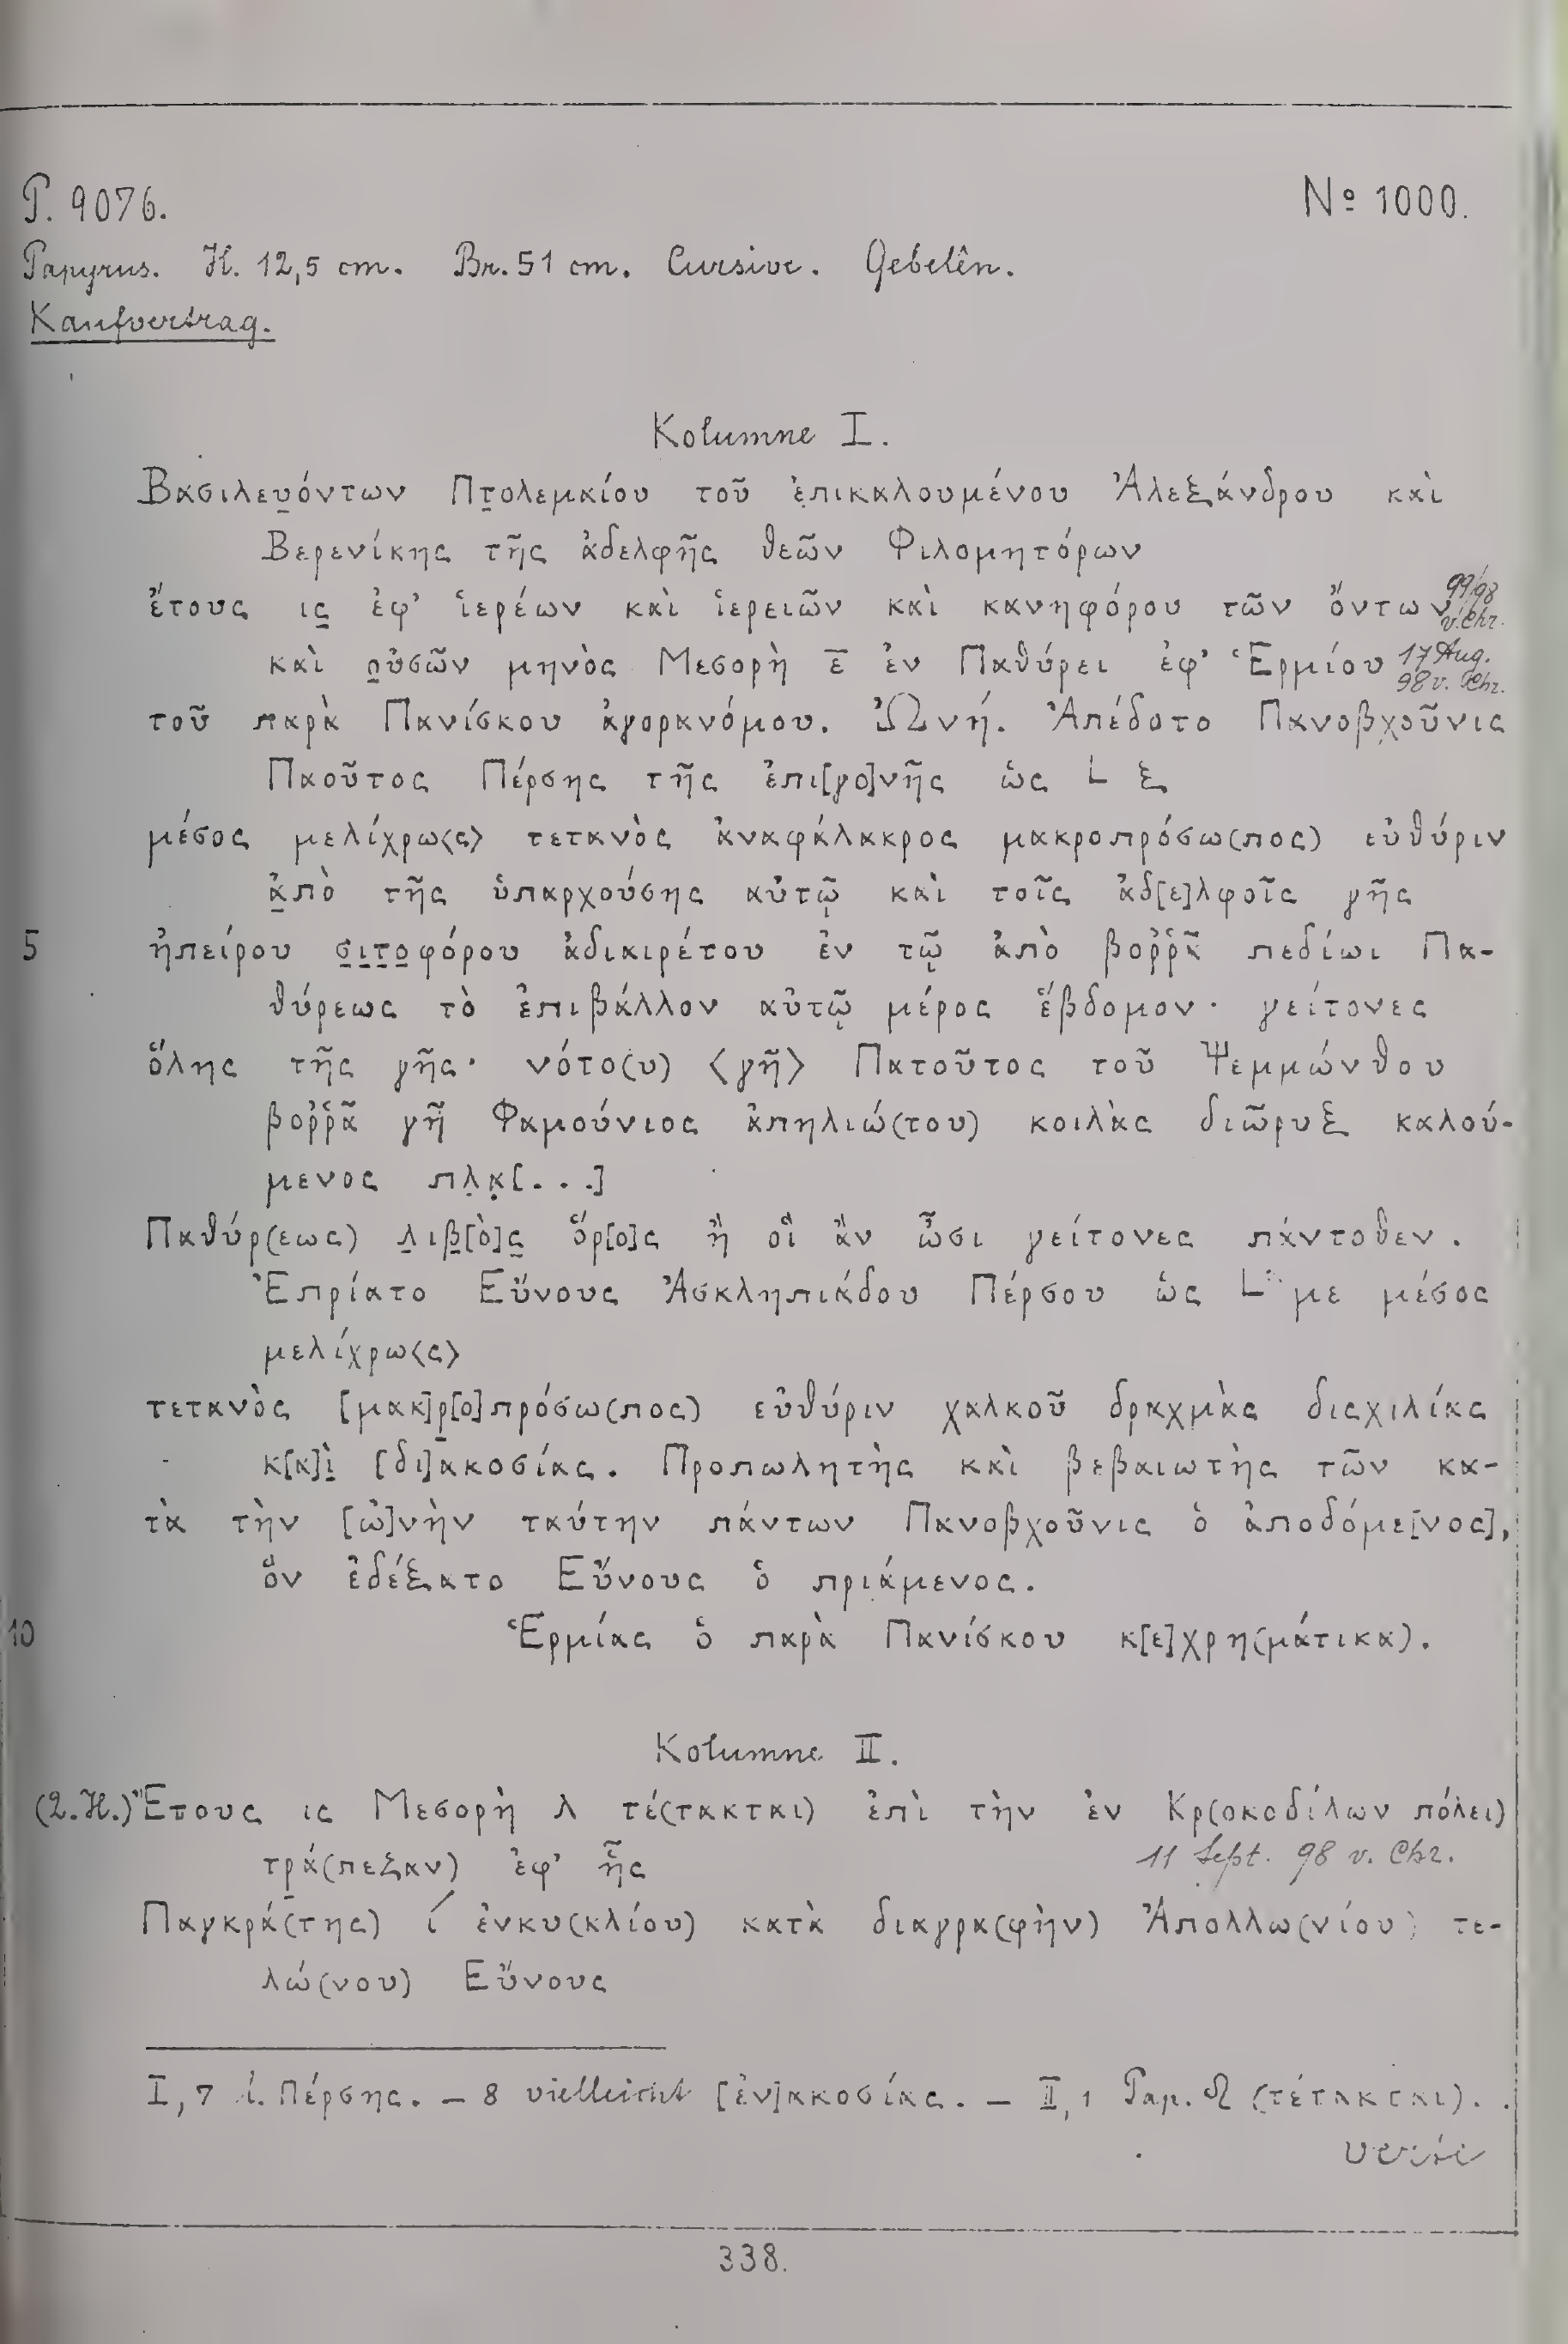 P. 9076. No 1000.
Papyrus. H. 12,5 cm. Br. 51 cm. Cursive. Gebelên.
Kaufvertrag.
Kolumne I.
Βασιλευ̣όντων Πτ̣ολεμαίου τοῦ ἐπικαλουμένου Ἀλεξάνδρου καὶ
Βερενίκης τῆς ἀδελφῆς θεῶν Φιλομητόρων
ἔτους ις̣ ἐφ’ ἱερέων καὶ ἱερειῶν καὶ κανηφόρου τῶν ὄντων 99/98 v. Chr.
καὶ ο̣ὐσῶν μηνὸς Μεσορὴ ε̅ ἐν Παθύρει ἐφ’ Ἑρμίου 17 Aug. 98 v. Chr.
τοῦ παρὰ Πανίσκου ἀγορανόμου. Ὠνή. Ἀπέδοτο Πανοβχοῦνις
Παοῦτος Πέρσης τῆς ἐπι[γο]νῆς ὡς L ξ
μέσος μελίχρω〈ς〉 τετανὸς ἀναφάλακρος μακροπρόσω(πος) εὐθύριν
ἀ̣πὸ τῆς ὑπαρχούσης αὐτῷ καὶ τοῖς ἀδ[ε]λφοῖς γῆς
5 ἠπείρου σ̣ι̣τ̣ο̣φόρου ἀδιαιρέτου ἐν τῷ ἀπὸ βοῤῥᾶ πεδίωι Πα-
θύρεως τὸ ἐπιβάλλον αὐτῷ μέρος ἕβδομον· γείτονες
ὅλης τῆς γῆς· νότο(υ) 〈γῆ〉 Πατοῦτος τοῦ Ψεμμώνθου
βοῤῥᾶ γῆ Φαμούνιος ἀπηλιώ(του) κοιλὰς διῶρυξ καλού-
μενος πλ̣α̣[...]
Παθύρ(εως) λ̣ιβ̣[ὸ]ς̣ ὄρ[ο]ς ἢ οἳ ἂν ὦσι γείτονες πάντοθεν.
Ἐπρίατο Εὔνους Ἀσκληπιάδου Πέρσου ὡς L με μέσος
μελίχρω〈ς〉
τετανὸς [μακ]ρ̣[ο]πρόσω(πος) εὐθύριν χαλκοῦ δραχμὰς δισχιλίας
κ[α]ὶ̣ [δι]ακοσίας. Προπωλητὴς καὶ βεβαιωτὴς τῶν κα-
τὰ τὴν [ὠ]νὴν ταύτην πάντων Πανοβχοῦνις ὁ ἀποδόμε[νος],
ὃν ἐδέξατο Εὔνους ὁ πριάμενος.
10 Ἑρμίας ὁ παρὰ Πανίσκου κ[ε]χρη(μάτικα).
Kolumne II.
(2. H.) Ἔτους ις Μεσορὴ λ τέ(τακται) ἐπὶ τὴν ἐν Κρ(οκοδίλων πόλει)
τρ̣ά(πεζαν) ἐφ’ ἧς 11 Sept. 98 v. Chr.
Παγκρά(της) ί ἐνκυ(κλίου) κατὰ διαγρα(φὴν) Ἀπολλω(νίου) τε-
λώ(νου) Εὔνους
I, 7 l. Πέρσης. — 8 vielleicht [ἐν]ακοσίας. — II, 1 Pap. (τέτακται).
338.